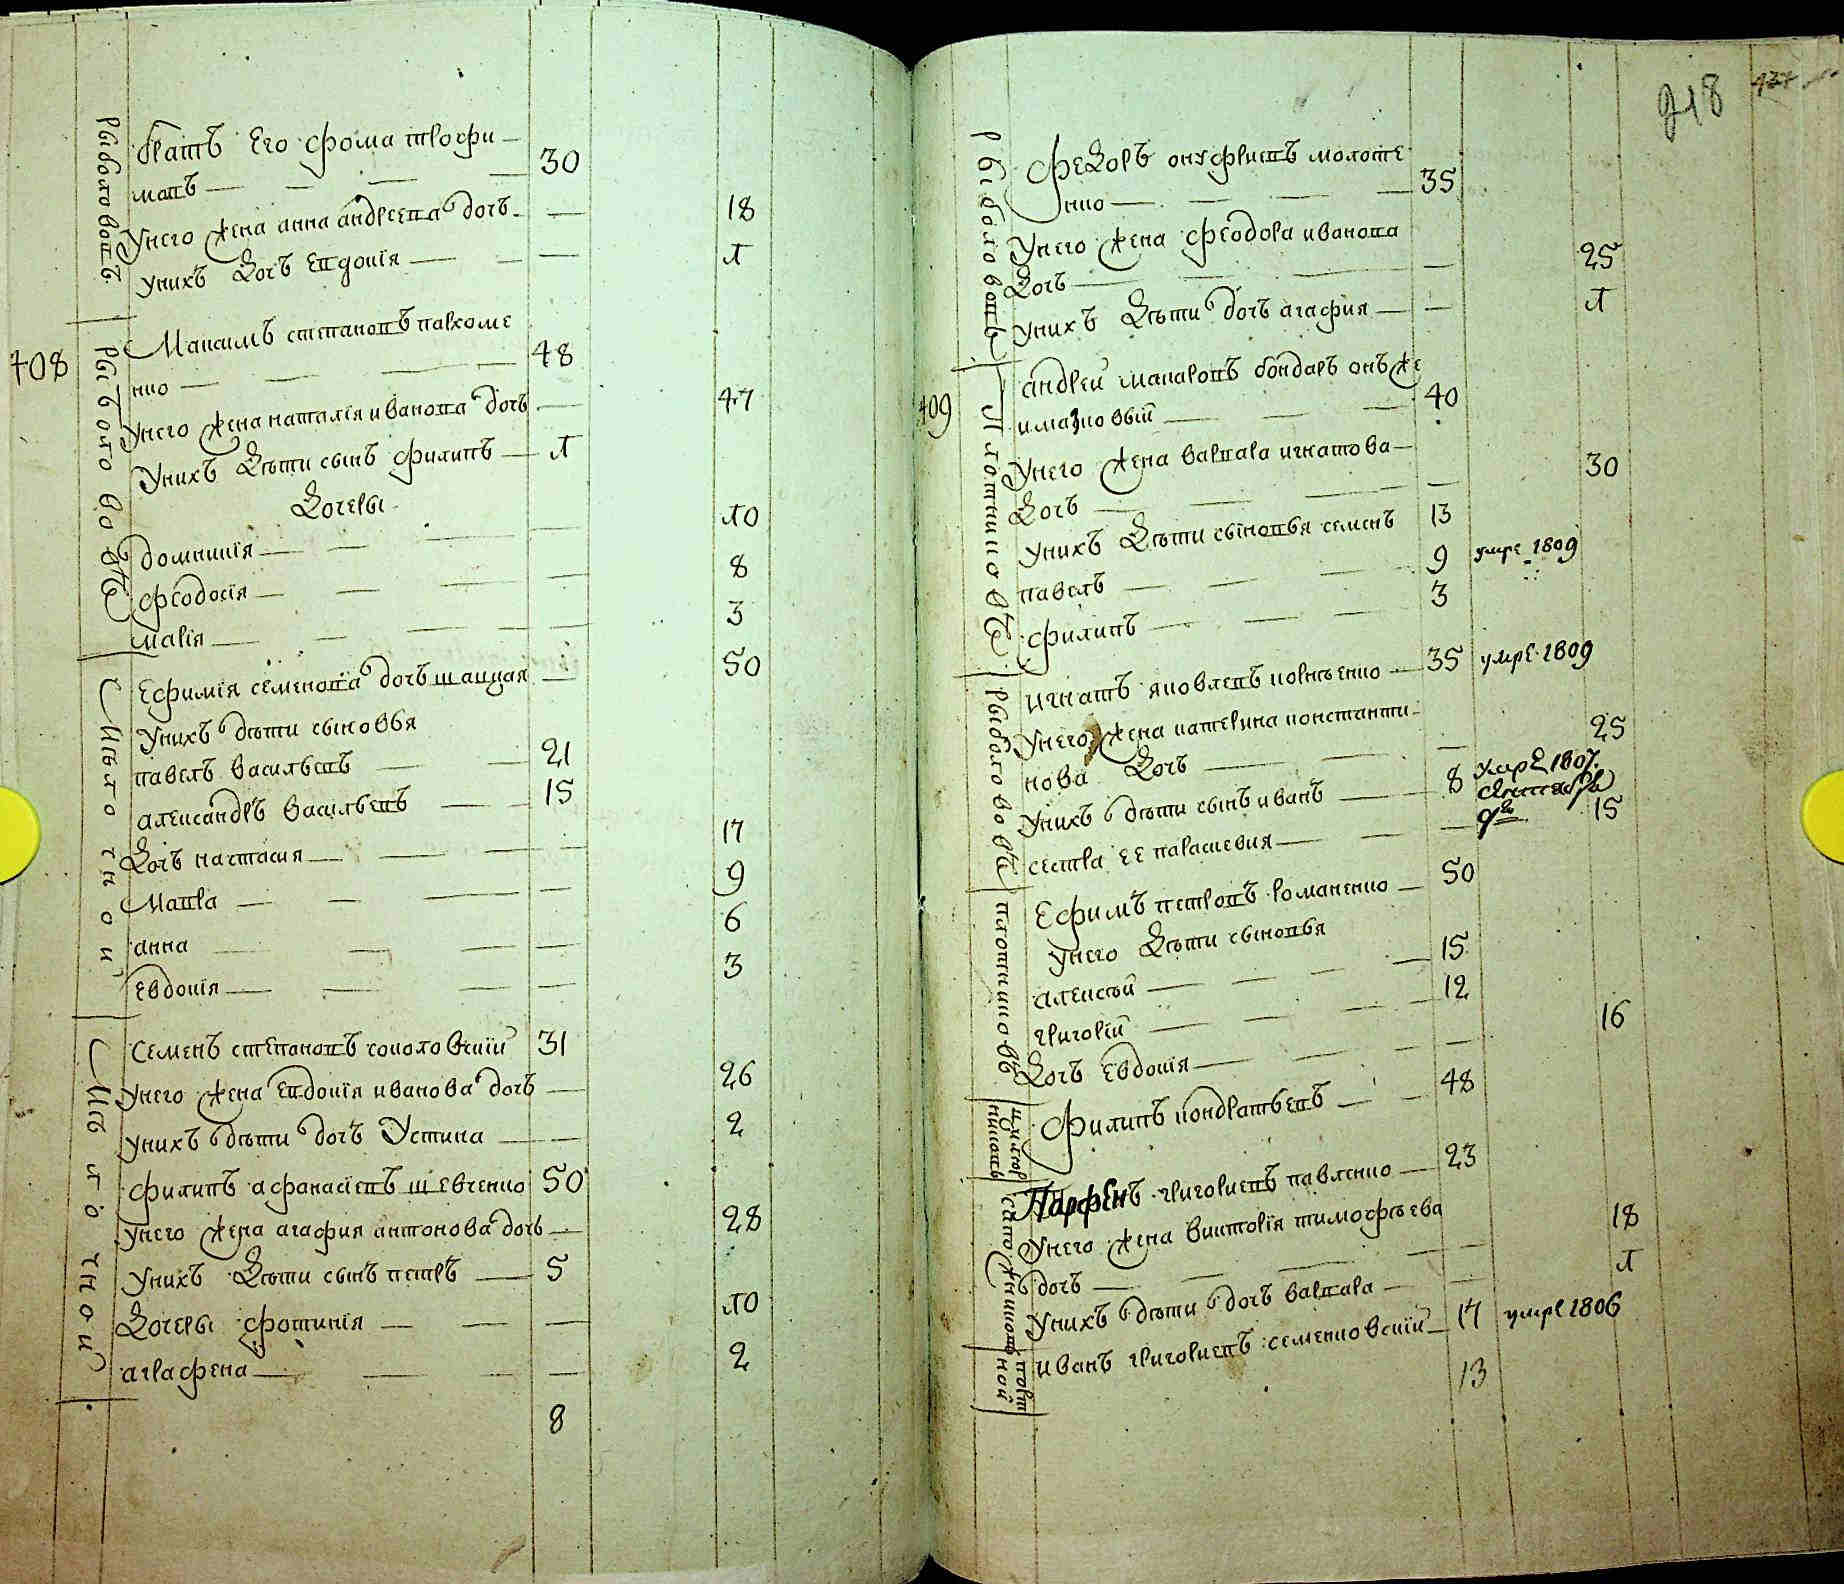 рыболововъ
братъ его фома трофи
мовъ 30
Унего жена анна андреева дочь 18
унихъ дочь евдокія 1
408
рыболововъ
Максимъ степановъ пархоме
нко 48
Унего жена наталія иванова дочь 47
Унихъ дѣти сынъ филипъ 1
дочеры
домникія 10
феодосія 8
марія 3
Ефимія семенова дочь 50
Унихъ дѣти сыновья
павелъ васильевъ 21
александръ васильевъ 15
дочь настасия 17
Мавра 9
анна 6
евдокія 3
семенъ степановъ соколовскій 31
унего жена евдокія иванова дочь 26
унихъ дѣти дочь Устина 2
филипъ афанасіевъ шевченко 50
унего жена агафия антонова дочь 28
унихъ дѣти сынъ петръ 5
дочеры фотинія 10
аграфена 2
8
218
437
феодоръ онуфриевъ молоте
нко 35
Унего жена феодора иванова
дочь 25
унихъ дѣти дочь агафия 1
409
плотниковъ
андрей макаровъ бондарь онъ же
имазковый 40
Унего жена варвара игнатова
дочь 30
унихъ дѣти сыновья семенъ 13
павелъ 9 умре 1809
филипъ 3
игнатъ яковлевъ корнѣенко 35 умре 1809
Унего жена катерина константи
нова дочь 25
унихъ дѣти сынъ иванъ 8 умре 1807
сентября
9го
сестра ее параскевия 15
Ефимъ петровъ романенко 50
унего дѣти сыновья
алексѣй 15
григорій 12
дочь евдокія 16
филипъ кондратьевъ 48
Парфенъ григориевъ павленко 23
Унего жена викторія тимофѣева
дочь 18
унихъ дѣти дочь варвара 1
иванъ григориевъ семенковскій 17 умре 1806
13